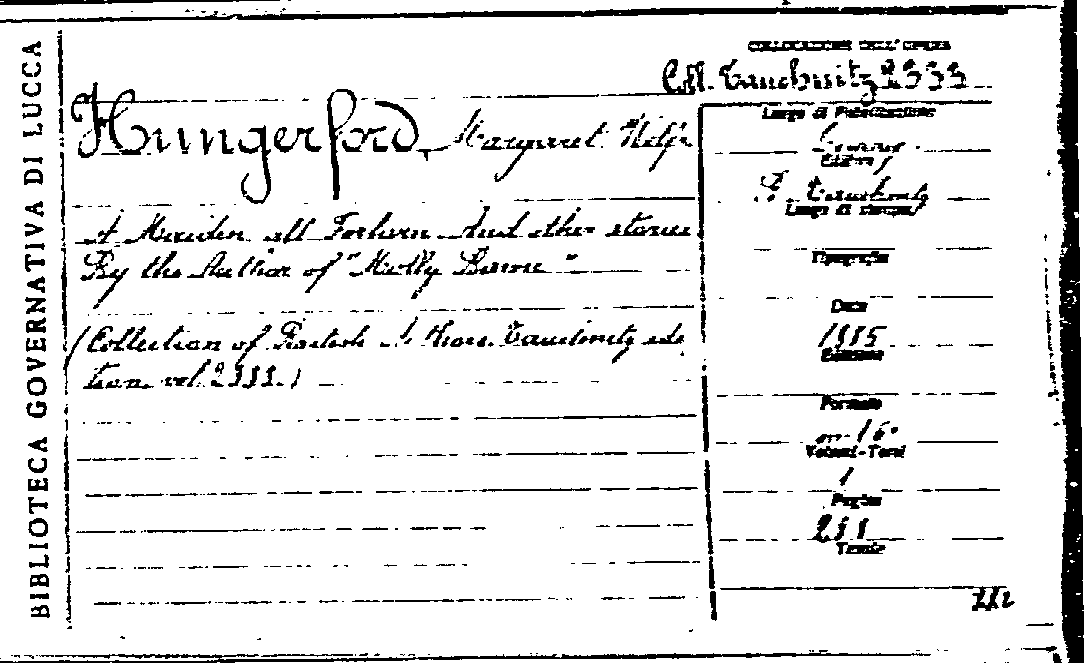 BIBLIOTECA GOVERNATIVA DI LUCCA
COLLOCAZIONE DELL'OPERA
Coll. Tauchnitz 2333
Hungerford, Margaret Wolfe
A Maiden all Forlorn And other stories
By the Author of "Molly Bawn"
(Collection of British Authors. Tauchnitz edi
tion vol.)
Luogo di Pubblicazione
Editore
B. Tauchnitz
Luogo di stampa
Tipografia
Data
1885
Edizione
Formato
in-16°
Volumi-Tomi
1
Pagine
Tavole